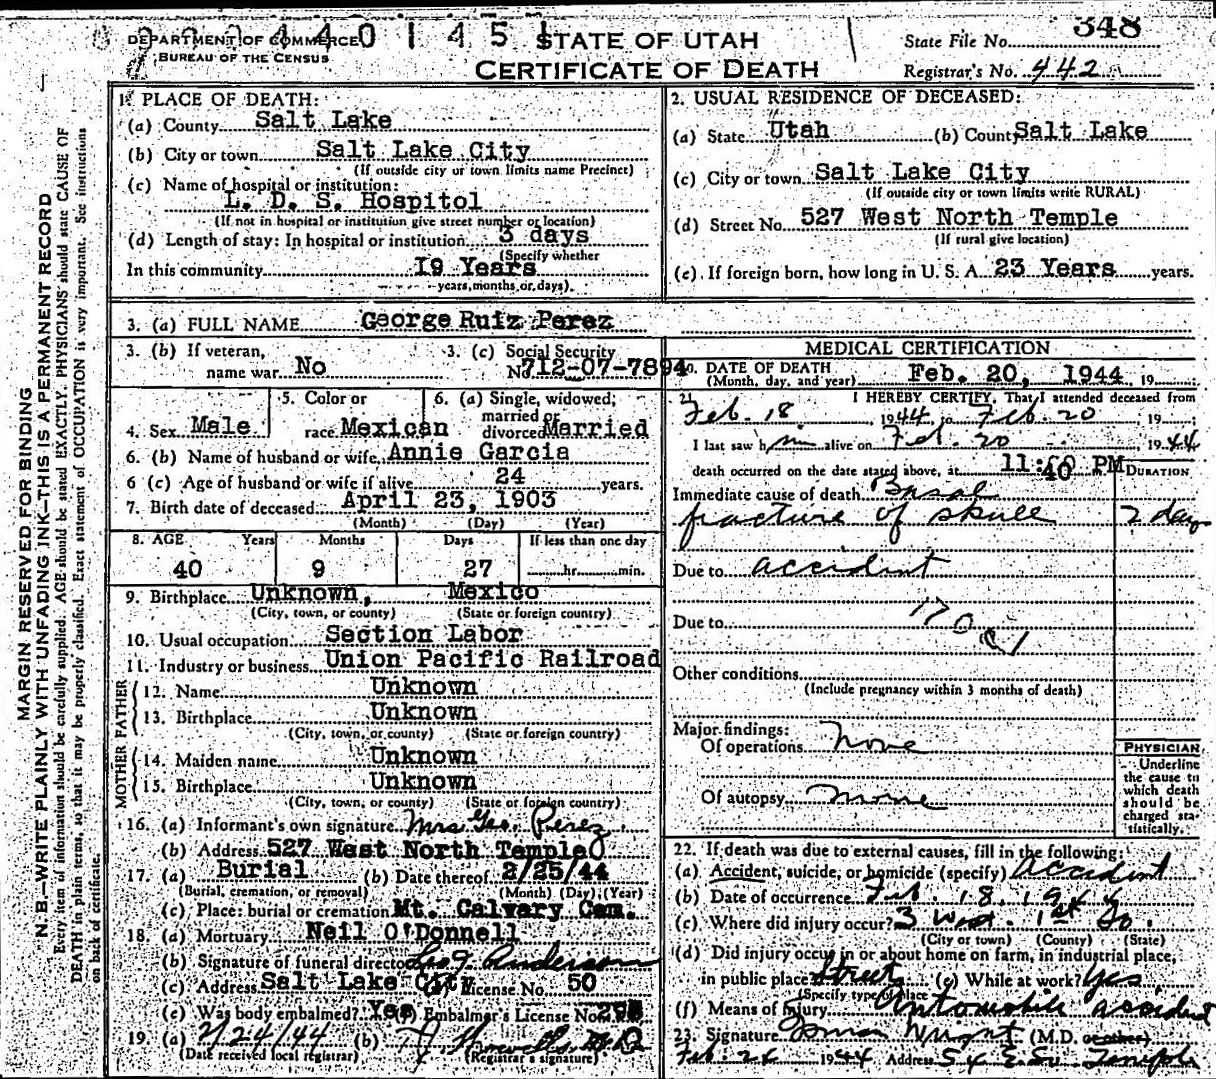 DEPARTMENT OF COMMERCE
BUREAU OF THE CENSUS
STATE OF UTAH
CERTIFICATE OF DEATH
State File No. 348
Registrar's No. 442
MARGIN RESERVED FOR BINDING
N.B—WRITE PLAINLY WITH UNFADING INK—THIS IS A PERMANENT RECORD
Every item of information should be carefully supplied. AGE should be stated EXACTLY. PHYSICIANS should state CAUSE OF
DEATH in plain terms, so that it may be properly classified. Exact statement of OCCUPATION is very important. See instructions
on back of certificate.
1. PLACE OF DEATH:
(a) County Salt Lake
(b) City or town Salt Lake City
(If outside city or town limits name Precinct)
(c) Name of hospital or institution:
L. D. S. Hospitol
(If not in hospital or institution give street number or location)
(d) Length of stay: In hospital or institution 3 days
(Specify whether
In this community 19 Years
years, months, or days)
2. USUAL RESIDENCE OF DECEASED:
(a) State Utah (b) County Salt Lake
(c) City or town Salt Lake City
(If outside city or town limits write RURAL)
(d) Street No. 527 West North Temple
(If rural give location)
(e) If foreign born, how long in U. S. A. 23 Years years.
3. (a) FULL NAME George Ruiz Perez
3. (b) If veteran, name war No
3. (c) Social Security No. 712-07-7894
4. Sex Male
5. Color or race Mexican
6. (a) Single, widowed, married or divorced Married
6. (b) Name of husband or wife Annie Garcia
6 (c) Age of husband or wife if alive 24 years.
7. Birth date of deceased April 23, 1903
(Month) (Day) (Year)
8. AGE Years Months Days If less than one day
40 9 27 hr. min.
9. Birthplace Unknown, Mexico
(City, town, or county) (State or foreign country)
10. Usual occupation Section Labor
11. Industry or business Union Pacific Railroad
FATHER
12. Name Unknown
13. Birthplace Unknown
(City, town, or county) (State or foreign country)
MOTHER
14. Maiden name Unknown
15. Birthplace Unknown
(City, town, or county) (State or foreign country)
16. (a) Informant's own signature Mrs Geo. Perez
(b) Address 527 West North Temple
17. (a) Burial (b) Date thereof 2/25/44
(Burial, cremation, or removal) (Month) (Day) (Year)
(c) Place: burial or cremation Mt. Calvary Cem.
18. (a) Mortuary Neil O'Donnell
(b) Signature of funeral director Anderson
(c) Address Salt Lake City License No. 50
(e) Was body embalmed? Yes Embalmer's License No.
19. (a) 2/24/44 (b) M.D.
(Date received local registrar) (Registrar's signature)
MEDICAL CERTIFICATION
20. DATE OF DEATH
(Month, day, and year) Feb. 20, 1944, 19
21. I HEREBY CERTIFY, That I attended deceased from
Feb. 18 1944 to Feb. 20, 19
I last saw him alive on Feb. 20 1944
death occurred on the date stated above, at 11:40 PM
DURATION
Immediate cause of death Basal
fracture of skull 2 days
Due to accident
Due to
170
Other conditions
(Include pregnancy within 3 months of death)
Major findings:
Of operations None
Of autopsy None
PHYSICIAN
Underline
the cause to
which death
should be
charged sta-
tistically.
22. If death was due to external causes, fill in the following:
(a) Accident, suicide, or homicide (specify) Accident
(b) Date of occurrence Feb. 18, 1944
(c) Where did injury occur? 3 West 1st So.
(City or town) (County) (State)
(d) Did injury occur in or about home on farm, in industrial place,
in public place Street (e) While at work? Yes
(Specify type of place
(f) Means of Injury Automobile accident
23. Signature Wright (M.D. or other)
Feb 1944 Address 54 E. So. Temple